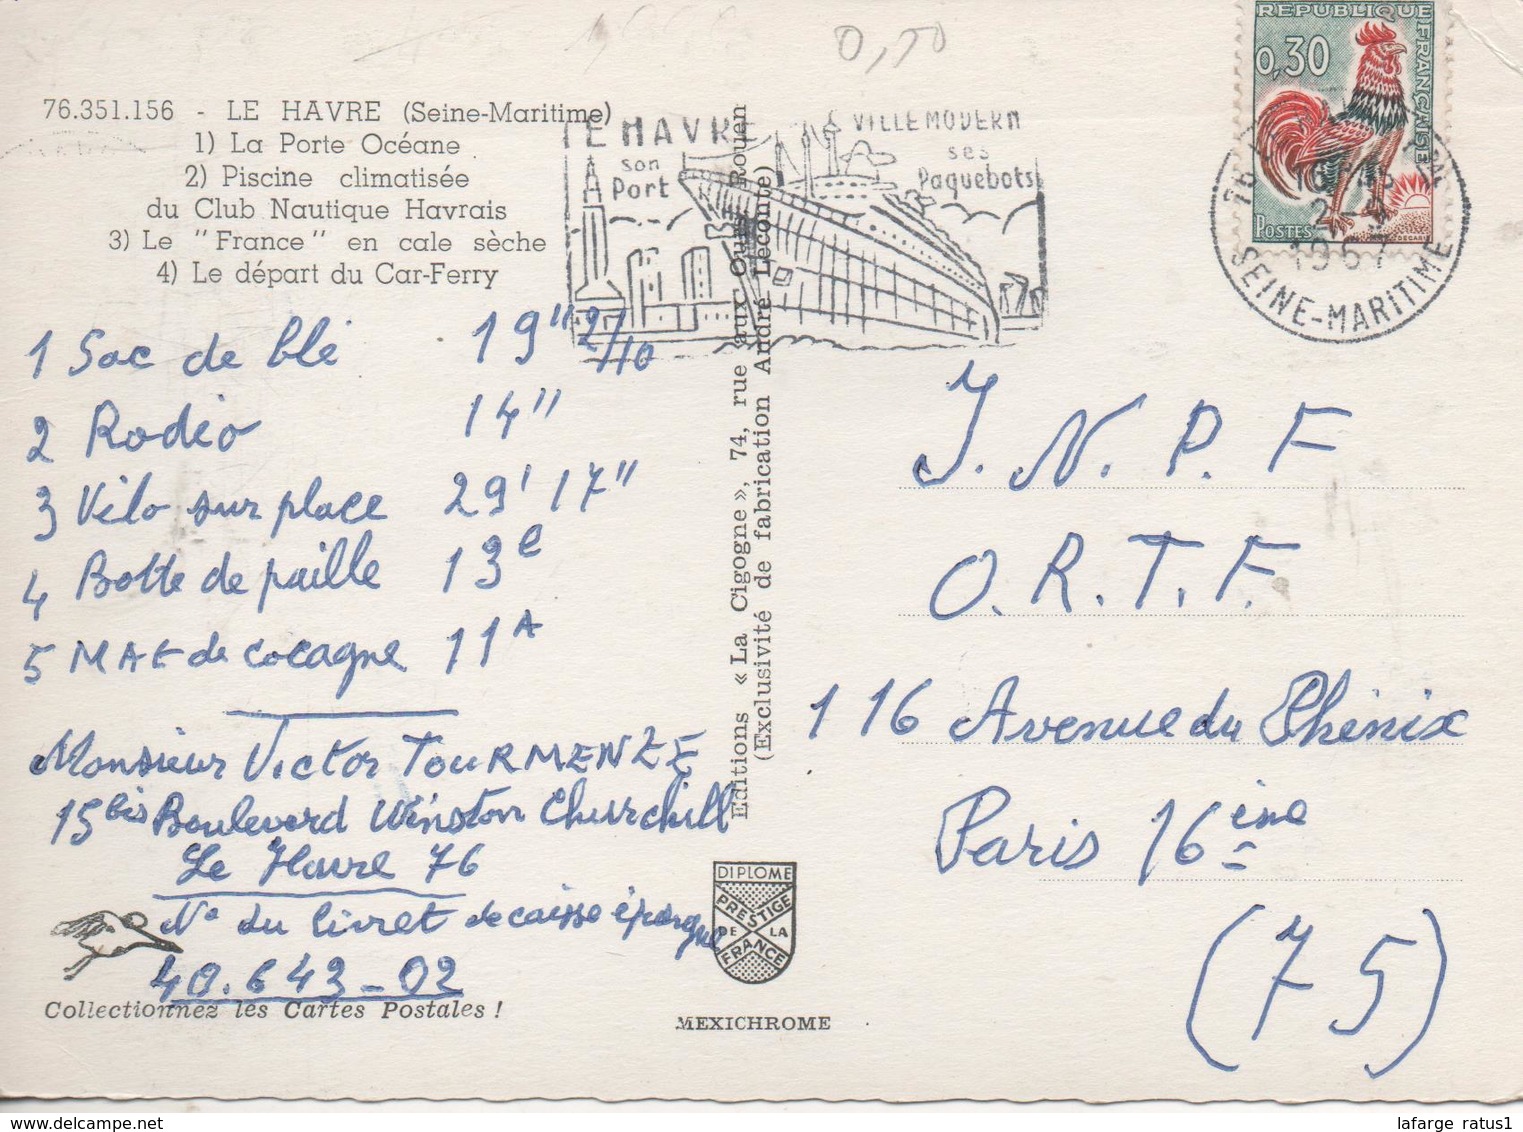 0,50
REPUBLIQUE
FRANÇAISE
0,30
POSTES
DECARIS
1967
SEINE-MARITIME
LE HAVRE
son
Port
VILLE MODERN
ses
Paquebots
76.351.156 - LE HAVRE (Seine-Maritime)
1) La Porte Océane
2) Piscine climatisée
du Club Nautique Havrais
3) Le "France" en cale sèche
4) Le départ du Car-Ferry
1 Sac de blé 19" 2/10
2 Rodéo 14"
3 Vélo sur place 29' 17"
4 Botte de paille 13e
5 MAt de cocagne 11A
Monsieur Victor TOURMENZE
15bis Boulevard Winston Churchill
Le Havre 76
N° du livret de caisse épargne
40.643-02
Collectionnez les Cartes Postales !
Editions « La Cigogne », 74, rue aux Ours, Rouen
(Exclusivité de fabrication André Leconte)
DIPLOME
PRESTIGE
DE LA
FRANCE
MEXICHROME
I.N.P.F
O.R.T.F.
116 Avenue du Phénix
Paris 16ème
(75)
lafarge ratus1